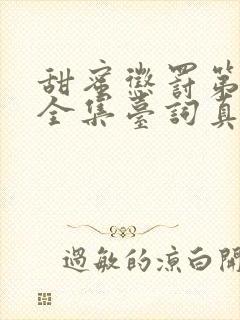 甜蜜懲罰第
全集臺詞真
過敏的涼白開